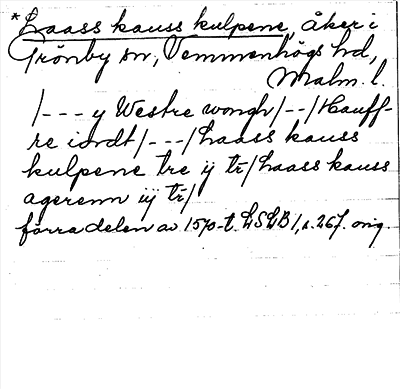 *Laass kauss kulpene, åker i
Grönby sn, Vemmenhögs hd,
Malm. l.
/--- y Westre wongh/--/Hauff-
re iordt/---/Laass kauss
kulpene tre ij tr/Laass kauss
agerenn iij tr/
förra delen av 1570-t. LSLB 1, s. 267. orig.